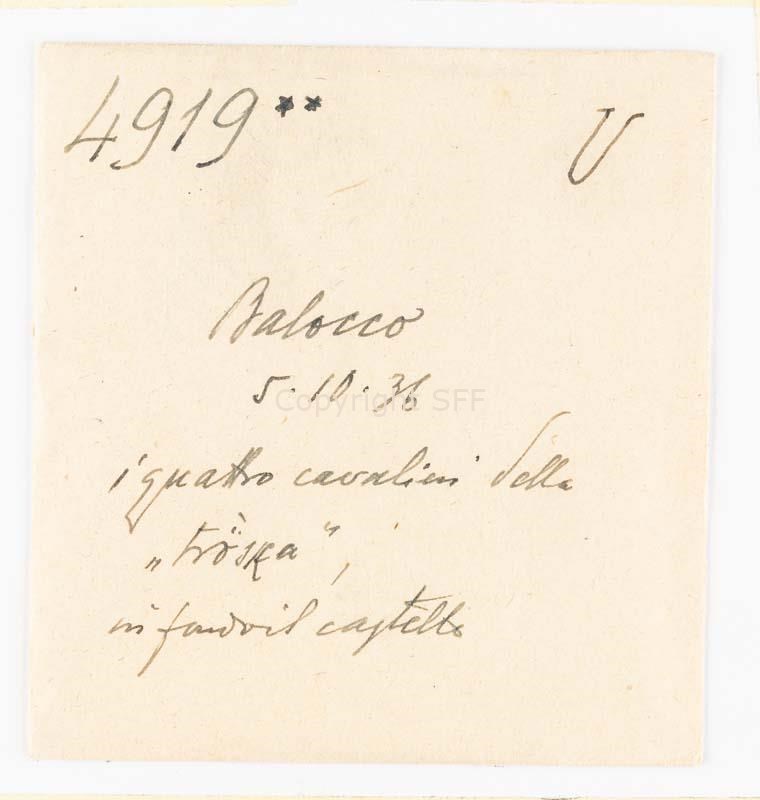 4919** U
Balocco
5.10.36
Copyright SFF
i quattro cavalieri della
„tröska",
in fondo il castello